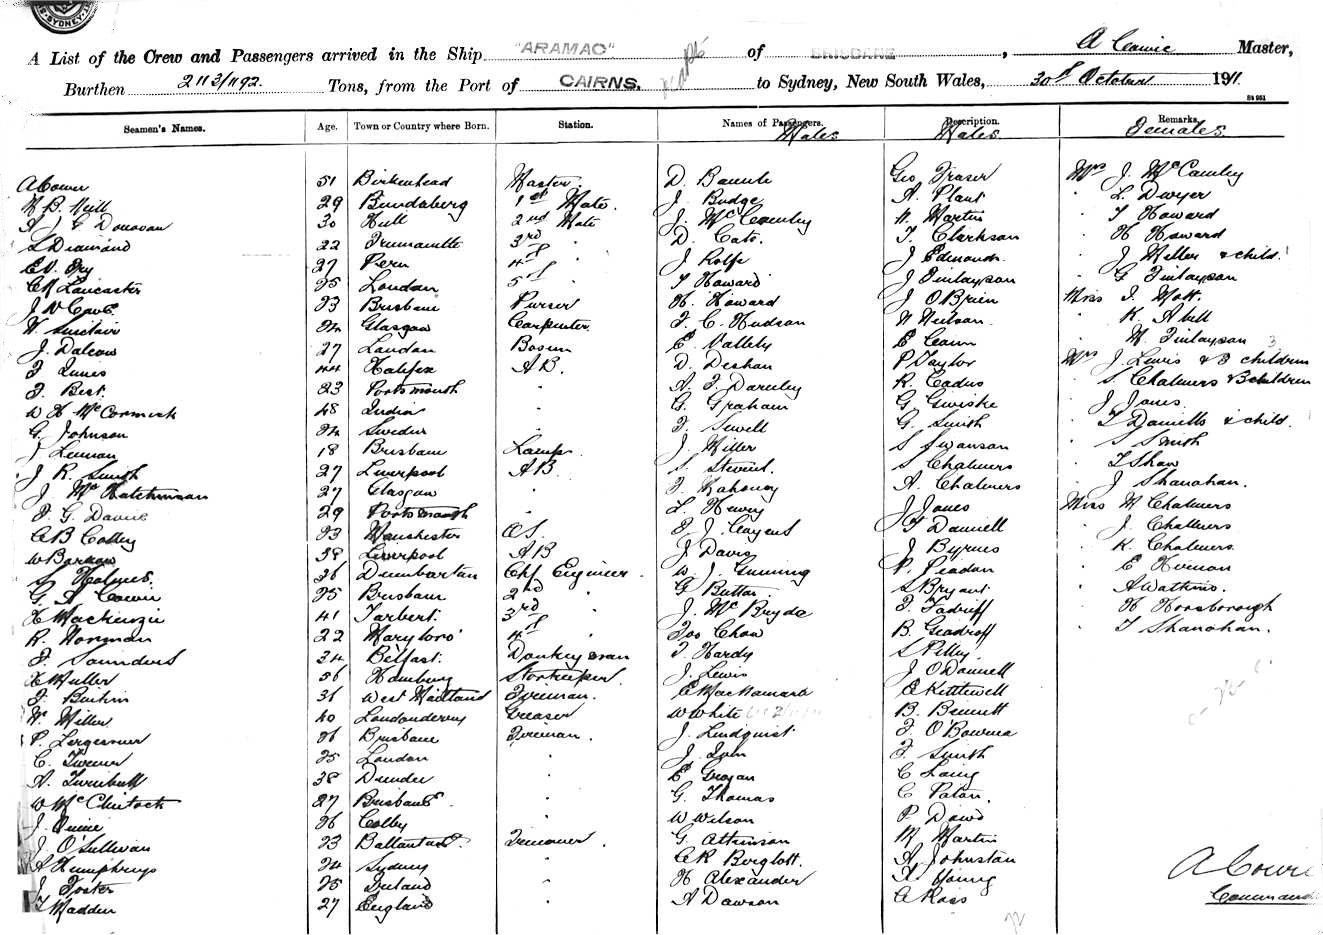 SYDNEY
A List of the Crew and Passengers arrived in the Ship "ARAMAC" of BRISBANE, A Cowie Master,
Burthen 2113/1192. Tons, from the Port of CAIRNS, to Sydney, New South Wales, 30th October 1911.
St 951
Seamen's Names. Age. Town or Country where Born. Station. Names of Passengers. Males Description. Males Remarks. Females
A Cowie 51 Birkenhead Master. D. Geo Fraser Mrs J. McCauley
29 Bundaberg 1st Mate. J. Budge A. Plant " L. Dwyer
A J G Donovan 30 Hull 2nd Mate J. McCauley W. Martin " T Howard
S Diamond 22 3rd " D. Cato. T. Clarkson " H Howard
E V. Fry 27 Peru 4th " J Rolfe J Edmonds " J Miller & child
C R Lancaster 25 London 5th " T Howard J Finlayson " G Finlayson
23 Brisbane Purser H. Howard J O'Brien Miss I. Mott.
W. Sinclair 24 Glasgow Carpenter. F. C. Hudson N Neilson " K. Abell
J. 27 London Bosun E Vallely E " M. Finlayson
J. 44 Halifax A B. D. P Taylor Mrs J. Lewis & 3 children
F. Best. 23 Portsmouth " A. J. R. " S Chalmers & 3 children
W H McCormick 48 India " G. Graham G " J Jones
G. Johnson 24 Sweden " F. Sewell G. Smith " T Daniells & child.
J Lennan 18 Brisbane Lamps. J. Miller S Swanson " S Smith
J R. Smith 27 Liverpool A B S. S Chalmers " T Shaw
J Mc Hutchinson 27 Glasgow " T Mahoney A. Chalmers " J Shanahan.
F G. Davie 29 Portsmouth " L. Henry J Jones Miss M Chalmers
A B Colley 23 Manchester O S. T J. T Daniell " J. Chalmers
W Barrow 58 Liverpool A B J Davis J Byrnes " K. Chalmers
S Holmes. 36 Dumbarton Chf Engineer. W. J. Gunning P. " E
G A Cowie 25 Brisbane 2nd " G Button S Bryant. " A Watkins.
H Mackenzie 41 Tarbert. 3rd " J. McBryde F " H Horsborough
R. Norman 22 Maryboro' 4th " Foo Chow B. " T Shanahan.
F. Saunders 34 Belfast. Donkeyman F Hardy S Pilley
H Muller 56 Hamburg Storekeeper. J. Lewis J O'Donnell
F. 31 West Maitland Fireman. E MacNamara E Kettlewell
W. Miller 40 Londonderry Greaser W White B. Bennett
P. 26 Brisbane Fireman. J. Lindquist F.
C. Turner 25 London " J. F. Smith
A. Turnbull 38 Dundee " E Grogan C Laing
W McClintock 27 Brisbane " G. Thomas C Paton.
J. 26 Colby " W Wilson P Dowd
J. O'Sullivan 23 Trimmer. G. Atkinson M Martin
A Humphreys 24 Sydney " C R A Johnston
J Foster 25 Ireland " H Alexander A Young
T Madden 27 England " A Dawson A Ross
A Cowie
Commander